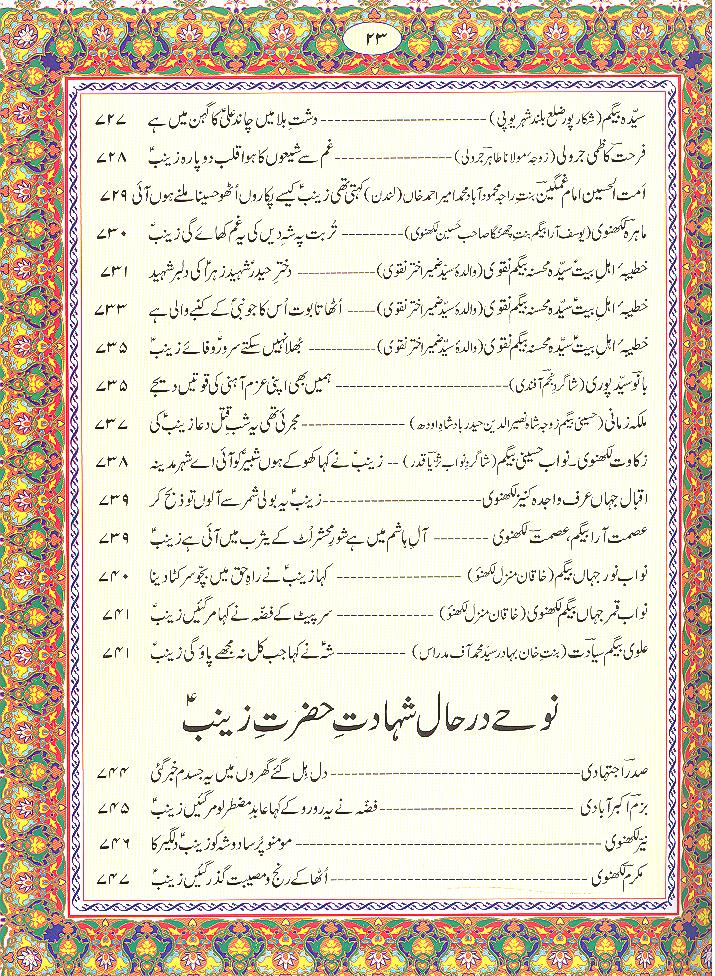 ۲۳
سیّدہ بیگم (شکارپور ضلع بلند شہر یوپی) ---------- دشتِ بلا میں چاند علیؑ کا گہن میں ہے ۷۲۷
فرحت کاظمی جرولی (زوجہ مولانا طاہر جرولی) ---------- غم سے شیعوں کا ہوا قلب دوپارہ زینبؑ ۷۲۸
اُمت الحسین امام غمگین بنت راجہ محمودآباد محمد امیر احمد خاں (لندن) کہتی تھی زینبؑ کیسے پکاروں اُٹھو حسینا ملنے ہوں آئی ۷۲۹
ماہرہ لکھنوی (یوسف آرا بیگم بنت چھنگا صاحب حسین لکھنوی) ---------- تُربت پہ شہ دیں کی یہ غم کھائے گی زینبؑ ۷۳۰
خطیبۂ اہلِ بیتؑ سیّدہ محسنہ بیگم نقوی (والدۂ سیّد ضمیر اختر نقوی) ---------- دخترِ حیدرؑ شہید زہراؑ کی دلبر شہید ۷۳۱
خطیبۂ اہلِ بیتؑ سیّدہ محسنہ بیگم نقوی (والدۂ سیّد ضمیر اختر نقوی) ---- اُٹھا تابوت اُس کا جو نبیؐ کے کنبے والی ہے ۷۳۳
خطیبۂ اہلِ بیتؑ سیّدہ محسنہ بیگم نقوی (والدۂ سیّد ضمیر اختر نقوی) ---------- بُھلا نہیں سکتے سرورؑ وفائے زینبؑ ۷۳۵
بانو سیّد پوری (شاگردِ نجم آفندی) ---------- ہمیں بھی اپنی عزم آہنی کی قوتیں دیجے ۷۳۵
ملکہ زمانی (حسینی بیگم زوجہ شاہ نصیر الدین حیدر بادشاہِ اودھ) ---------- مجرئی تھی یہ شبِ قتل دعا زینبؑ کی ۷۳۷
زکاوت لکھنوی۔ نواب حسینی بیگم (شاگردِ نواب ثریّا قدر) -- زینبؑ نے کہا کھو کے ہوں شبیرؑ کو آئی اے شہر مدینہ ۷۳۸
اقبال جہاں عرف واجدہ کنیز لکھنوی ---------- زینبؑ یہ بولی شمر سے آلوں تو ذبح کر ۷۳۹
عصمت آرا بیگم، عصمت لکھنوی -------- آلِ ہاشم میں ہے شورِ محشر لُٹ کے یثرب میں آئی ہے زینبؑ ۷۳۹
نواب نور جہاں بیگم (خاقان منزل لکھنؤ) ---------- کہا زینبؑ نے راہِ حق میں بچّو سر کٹا دینا ۷۴۰
نواب قمر جہاں بیگم لکھنوی (خاقان منزل لکھنؤ) ---------- سر پیٹ کے فضّہ نے کہا مر گئیں زینبؑ ۷۴۱
علوی بیگم سیادت (بنتِ خان بہادر سیّد محمد آف مدراس) ---------- شہؑ نے کہا جب کل نہ مجھے پاؤ گی زینبؑ ۷۴۱
نوحے در حال شہادتِ حضرتِ زینبؑ
صدر اجتہادی ---------- دل ہل گئے گھروں میں یہ جسدم خبر گئی ۷۴۴
بزم اکبر آبادی ---------- فضّہ نے یہ رو رو کے کہا عابدِ مضطر لو مر گئیں زینبؑ ۷۴۵
نیّر لکھنوی ---------- مومنو پُرسا دو شہ کو زینبؑ دلگیر کا ۷۴۶
مکرم لکھنوی ---------- اُٹھا کے رنج و مصیبت گذر گئیں زینبؑ ۷۴۷